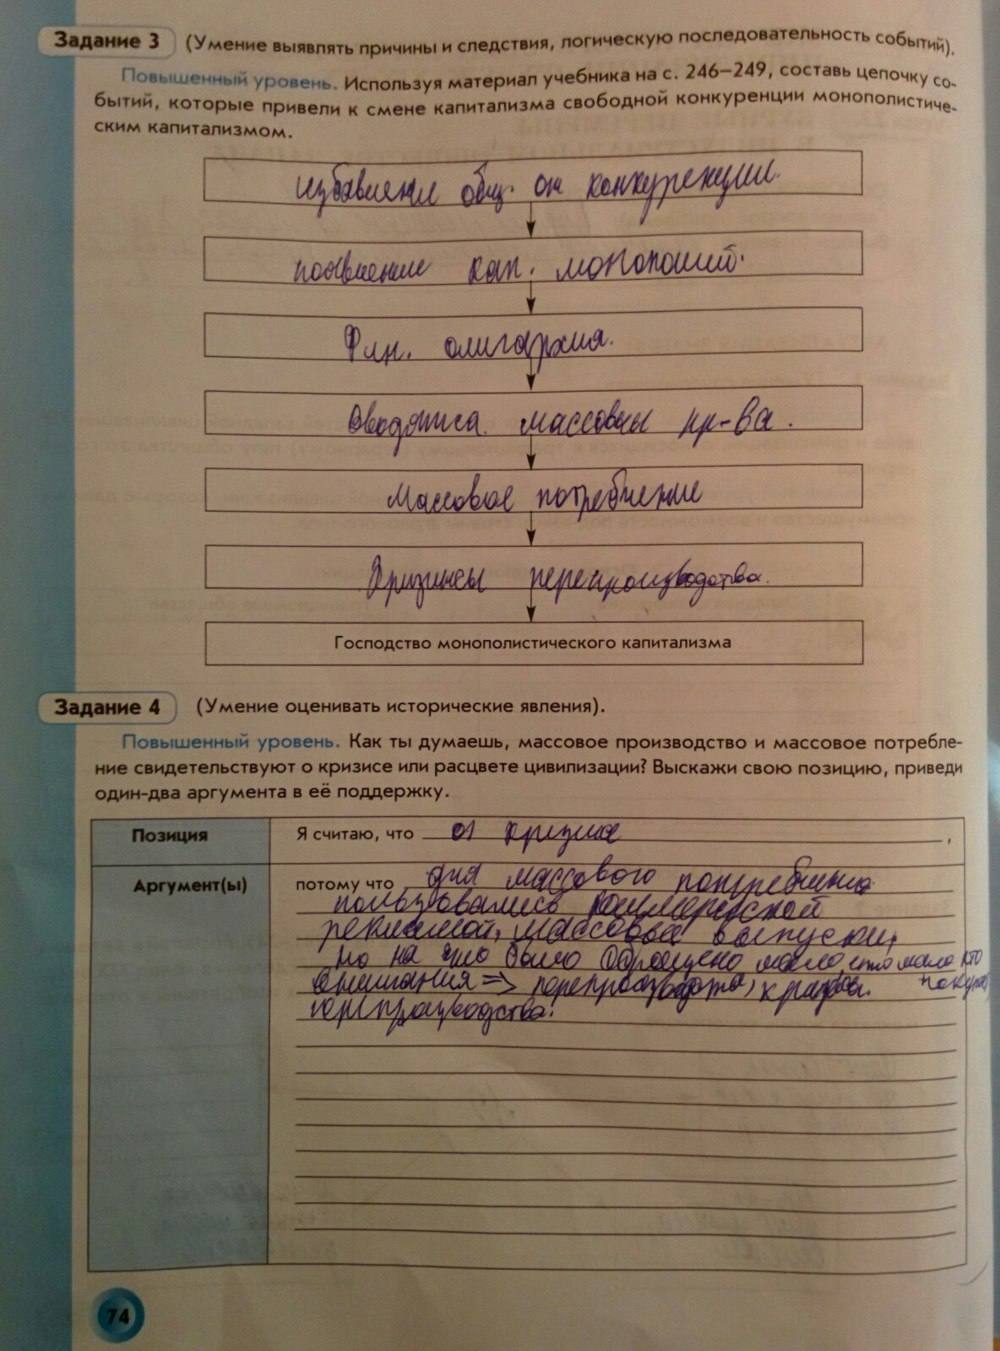 Задание 3 (Умение выявлять причины и следствия, логическую последовательность событий).
Повышенный уровень. Используя материал учебника на с. 246–249, составь цепочку со-
бытий, которые привели к смене капитализма свободной конкуренции монополистиче-
ским капитализмом.
общ. от конкуренции.
появление кап. монополий.
Фин. олигархия.
Вводятся массовы пр-ва.
Массовое потребление
Кризисы перепроизводства.
Господство монополистического капитализма
Задание 4 (Умение оценивать исторические явления).
Повышенный уровень. Как ты думаешь, массовое производство и массовое потребле-
ние свидетельствуют о кризисе или расцвете цивилизации? Выскажи свою позицию, приведи
один-два аргумента в её поддержку.
Позиция Я считаю, что о кризисе ,
Аргумент(ы) потому что для массового потребления
пользовались коммерческой
рекламой, массовые выпуски,
но на это было обращено мало, что мало кто
внимания => перепроизводства, кризисы
перепроизводства.
74